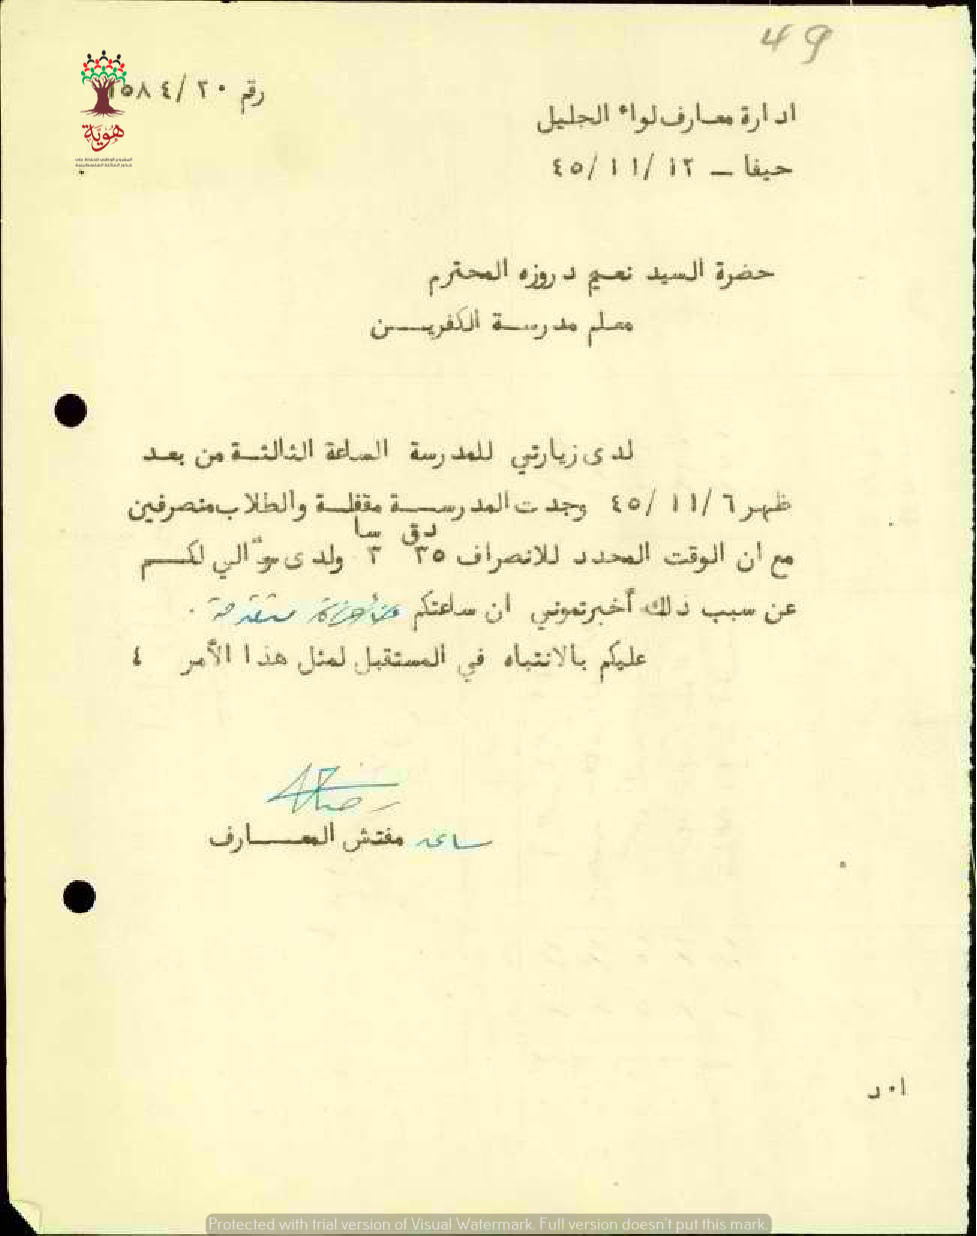 49
رقم ٢٠/١٥٨٤
هوية
ادارة معارف لواء الجليل
حيفا – ١٢/١١/٤٥
حضرة السيد نعيم دروزه المحترم
معلم مدرسة الكفرين
لدى زيارتي للمدرسة الساعة الثالثة من بعد
ظهر ٦/١١/٤٥ وجدت المدرسة مقفلة والطلاب منصرفين
دق سا
مع ان الوقت المحدد للانصراف ٣٥ ٣ ولدى سؤالي لكم
عن سبب ذلك أخبرتموني ان ساعتكم متقدمة .
عليكم بالانتباه في المستقبل لمثل هذا الأمر ٤
مفتش المعارف
ا٠د
Protected with trial version of Visual Watermark. Full version doesn't put this mark.